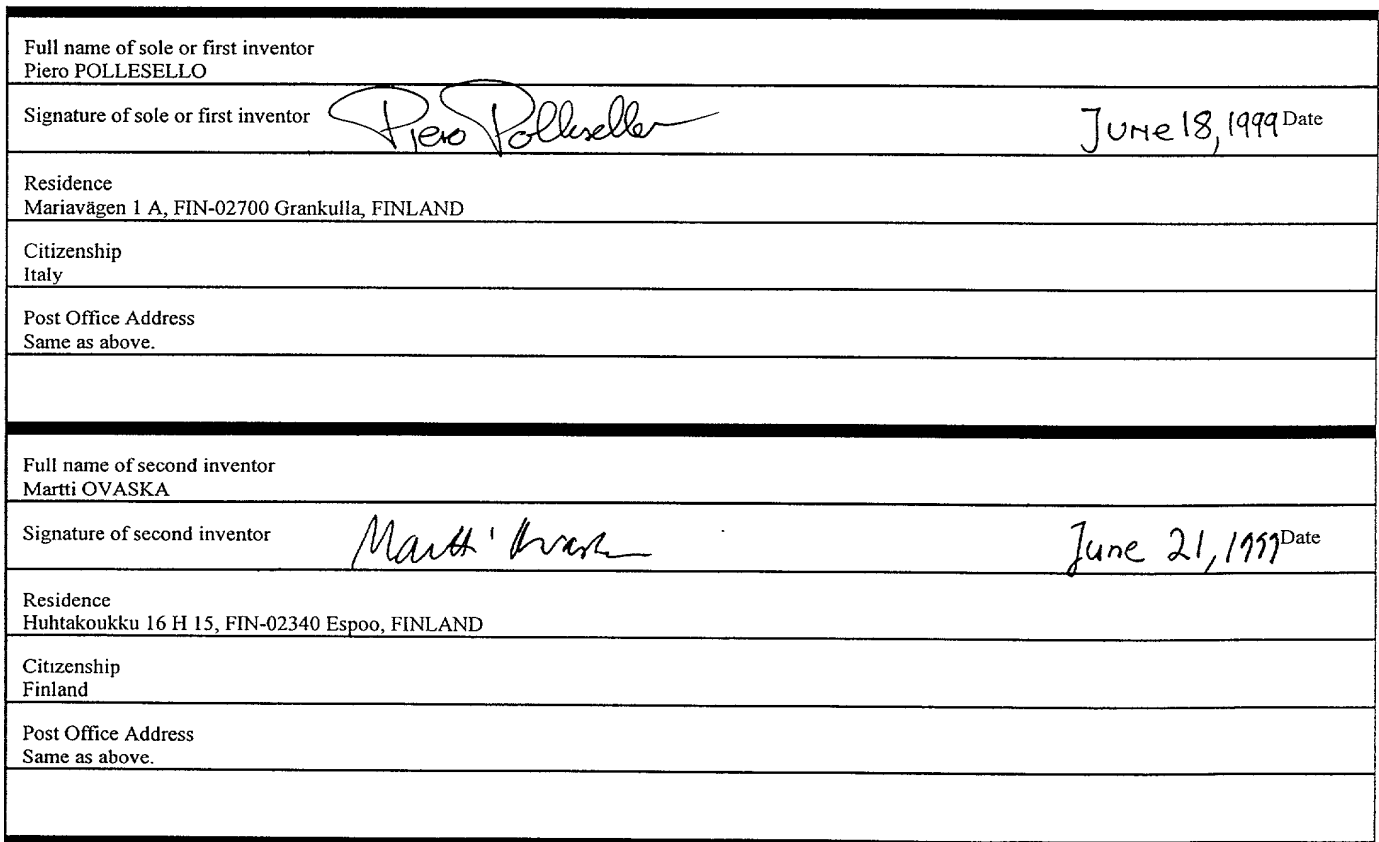 Full name of sole or first inventor
Piero POLLESELLO
Signature of sole or first inventor Piero Pollesello June 18, 1999 Date
Residence
Mariavägen 1 A, FIN-02700 Grankulla, FINLAND
Citizenship
Italy
Post Office Address
Same as above.
Full name of second inventor
Martti OVASKA
Signature of second inventor Martti Ovaska June 21, 1999 Date
Residence
Huhtakoukku 16 H 15, FIN-02340 Espoo, FINLAND
Citizenship
Finland
Post Office Address
Same as above.